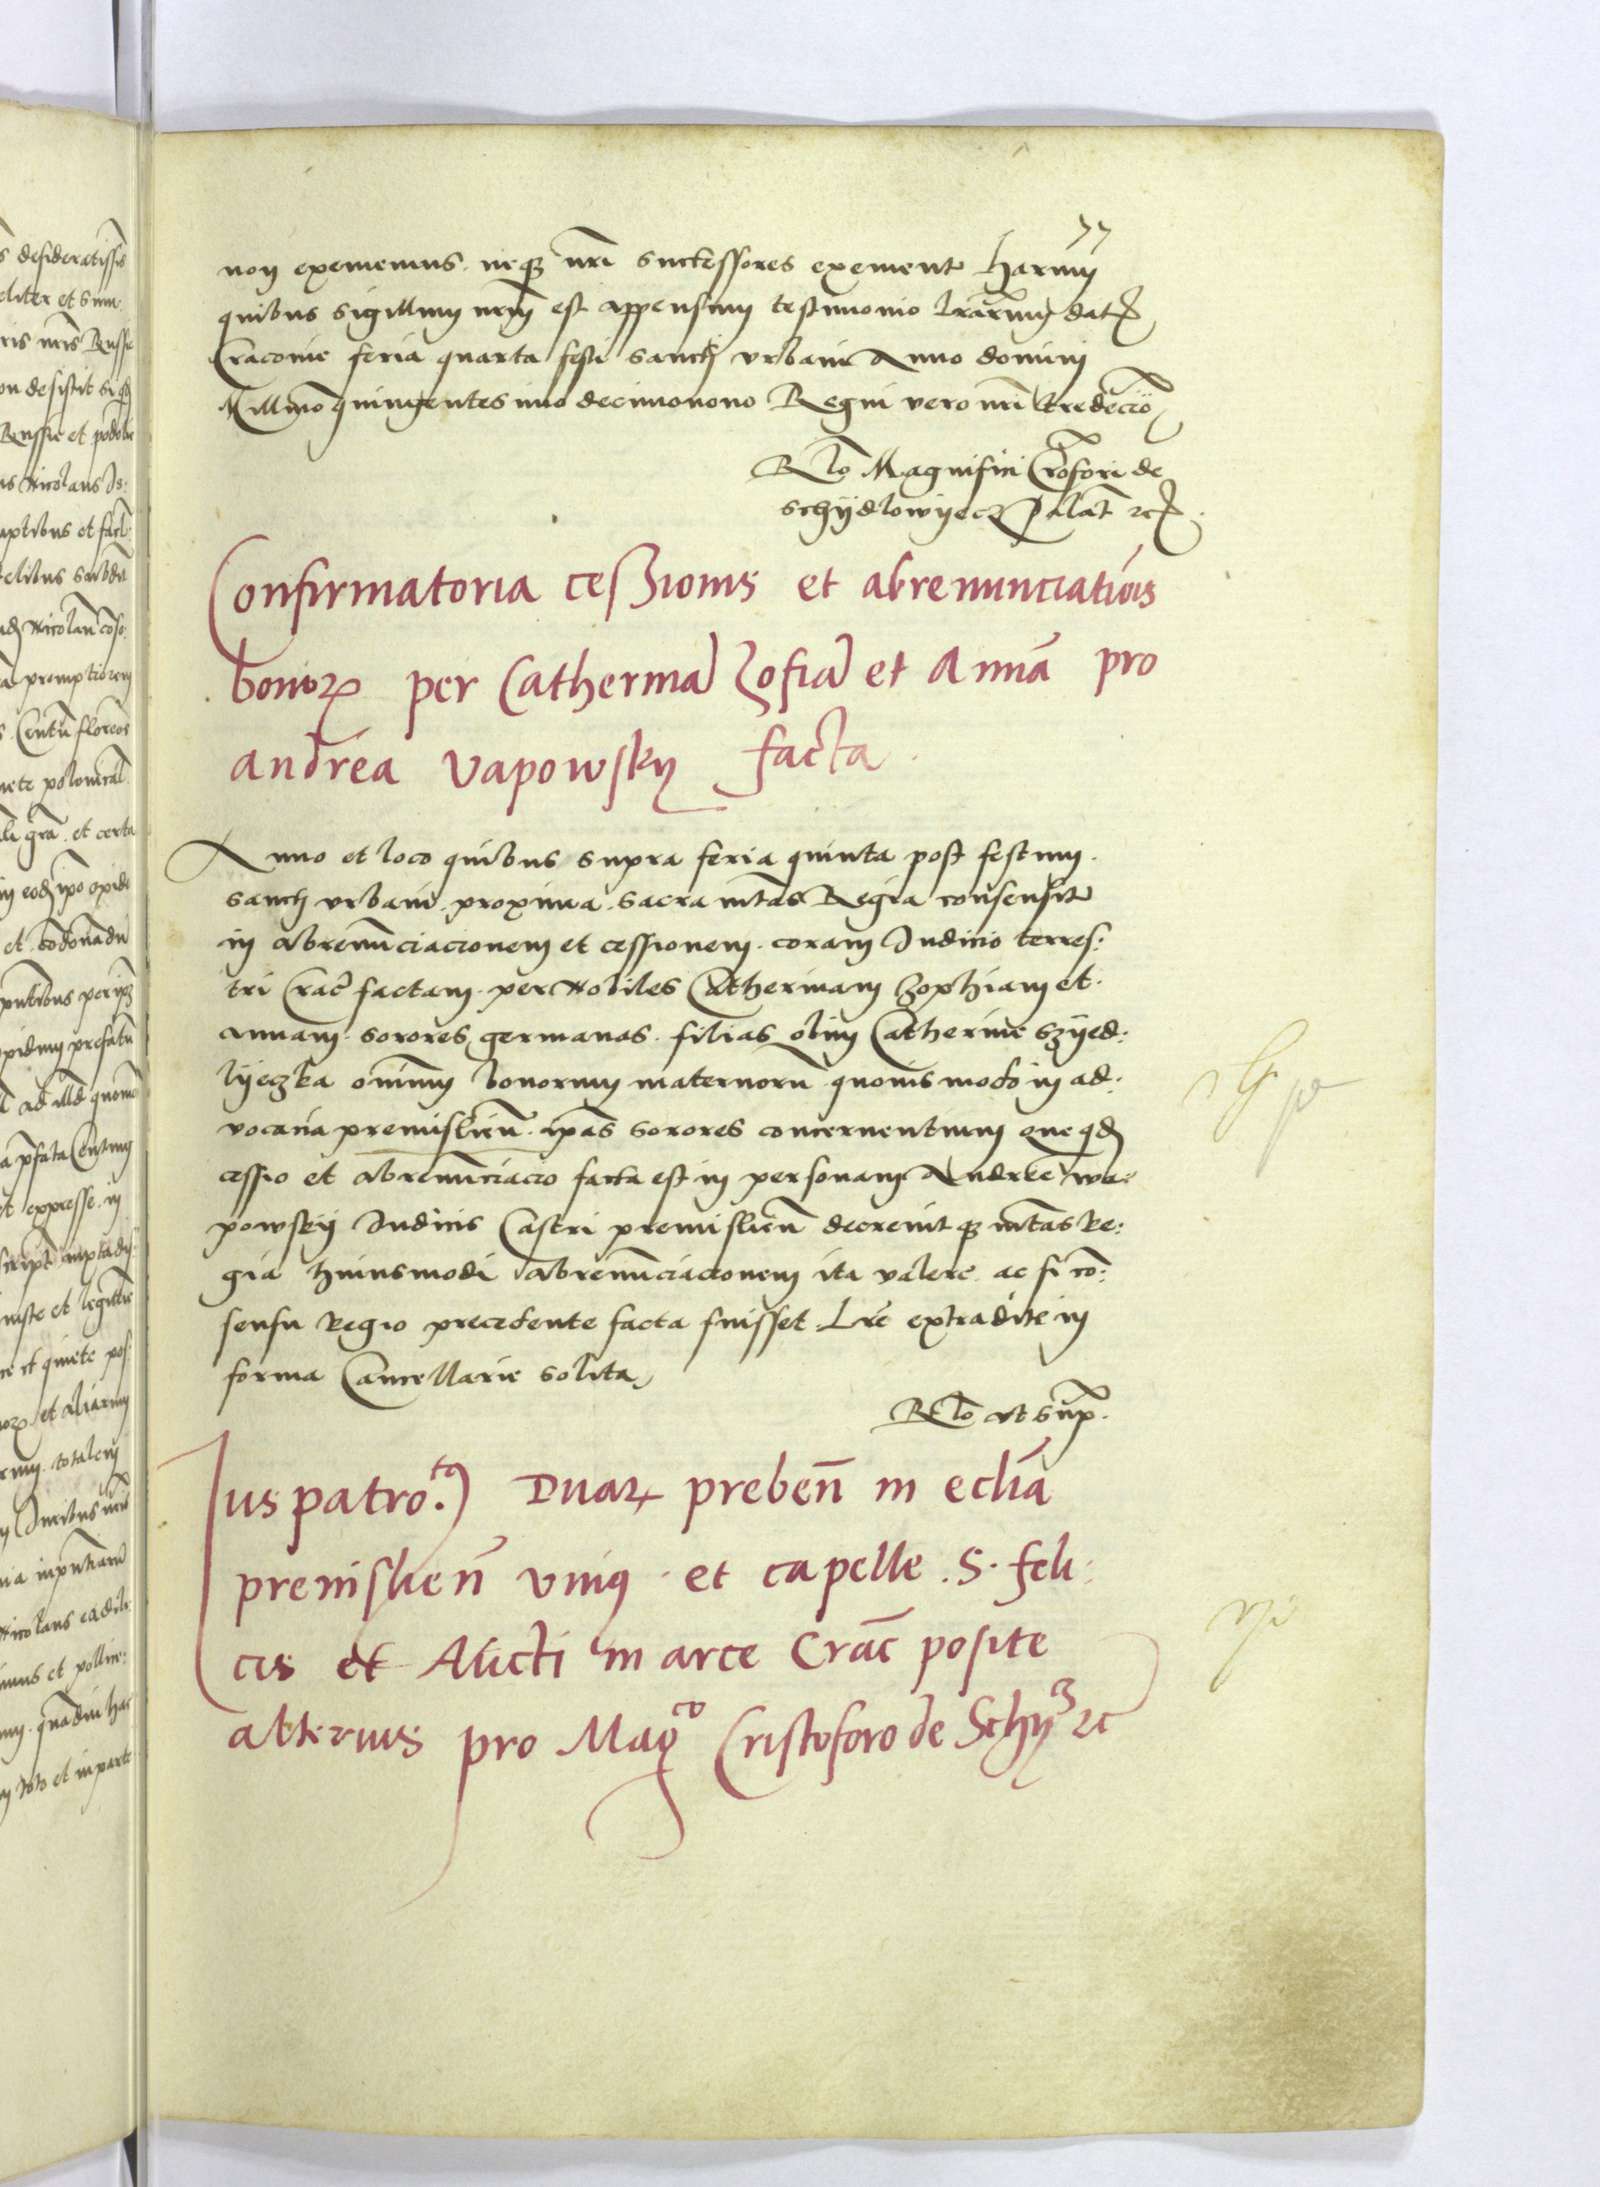 77
non exememus neq3 nri successores exement Harum
quibus sigillum nrm est appensum testimonio lrarum dat
Cracovie feria quarta festi sancti Urbani Anno domini
Millmo quingentesimo decimonono Regni vero nri tredecio
Rlo Magnifici Crofori de
schydlowyecz Palat zc
Confirmatoria cessionis et abrenunciationis
bonor per Catherina Zofia et Anna pro
andrea Vapowsky facta
Anno et loco quibus supra feria quinta post festum
sancti urbani proxima sacra mtas Regia consensit
in abrenunciacionem et cessionem coram Judicio terres:
tri Crac factam per Nobiles Catherinam Zophiam et
annam sorores germanas filias olim Catherine Szyed:
lyeczka omnium bonorum maternoru quovismodo in ad:
vocatia premislien ipas sorores concernentium que qd
cessio et abrenunciacio facta est in personam Andree wa:
powsky Judicis Castri premislien decrevit q3 mtas Re:
gia huiusmodi abrenunciacionem ita valere ac si co:
sensu Regio precedente facta fuisset Lre extradite in
forma Cancellarie solita
Rlo ut sup
Jus patro.to Duar preben in eclia
premislien unius et capelle S. feli:
cis et Aucti in arce Crac posite
alterius pro Magco Cristoforo de Schy zc